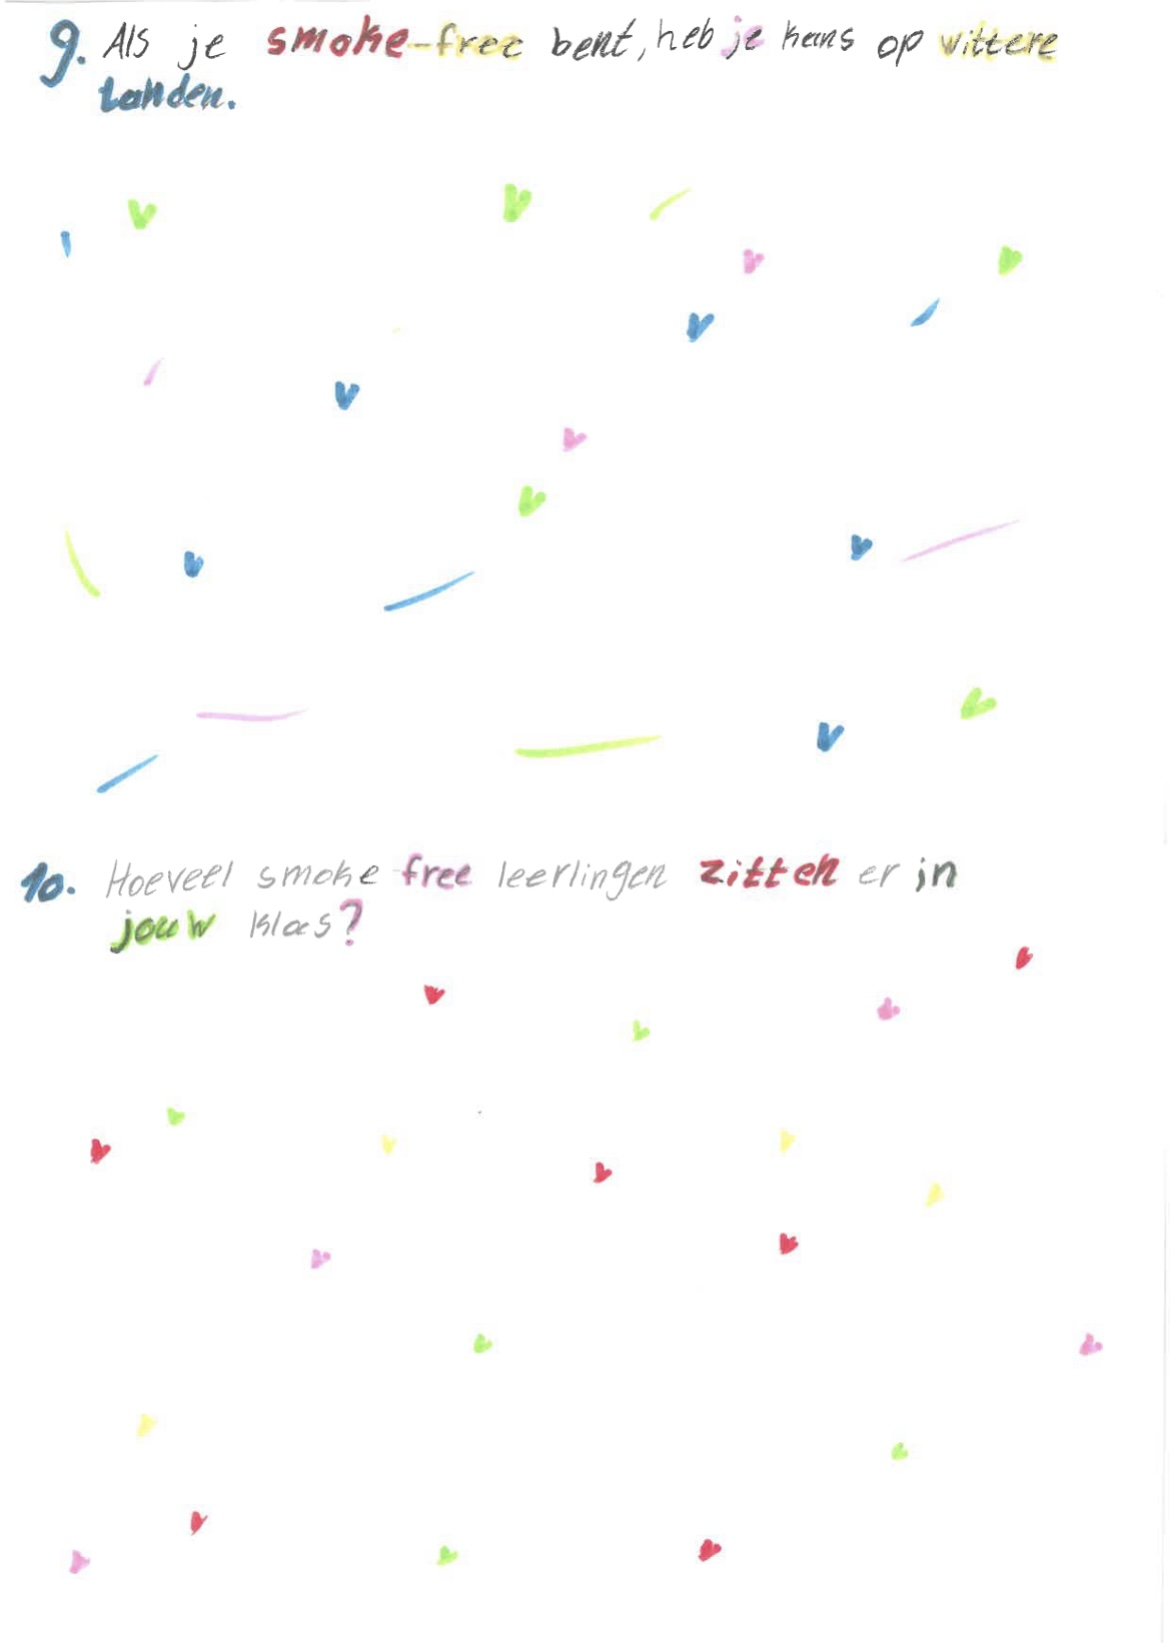 9. Als je smoke-free bent, heb je kans op wittere
tanden.
10. Hoeveel smoke free leerlingen zitten er in
jouw klas?